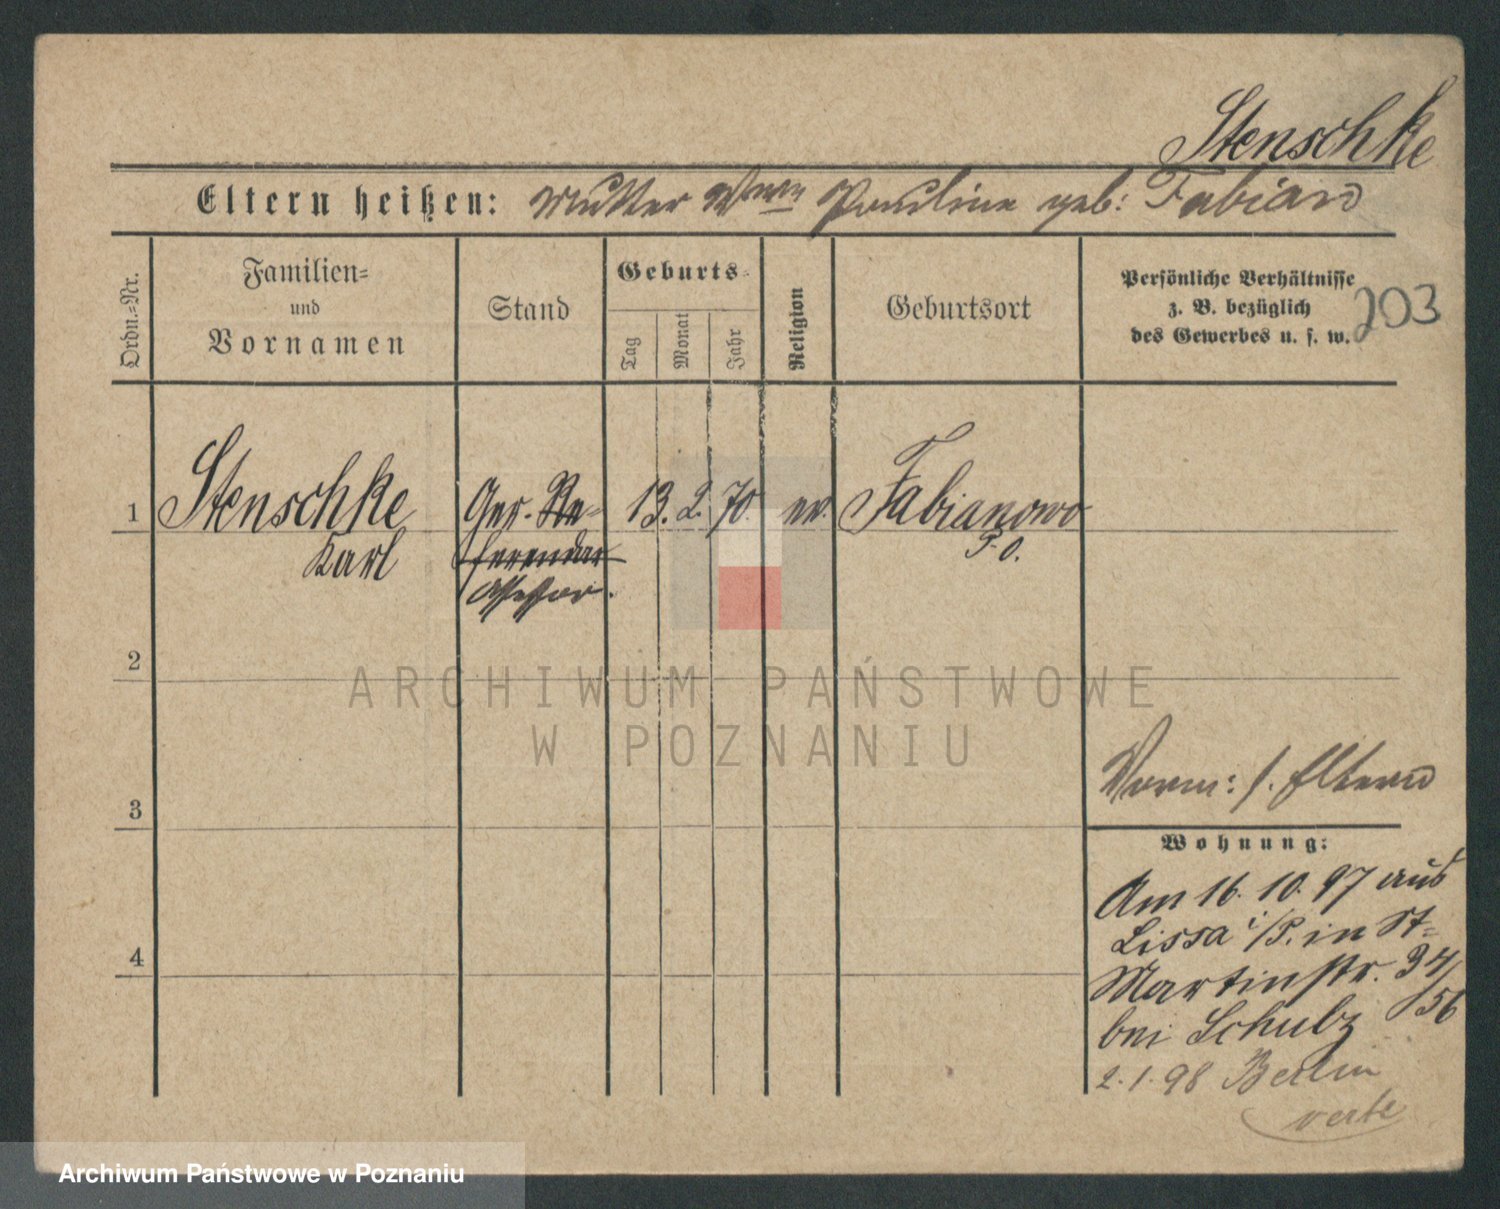 Stenschke
Eltern heißen: Mutter Wwe Pauline geb: Fabian
Ordn.-Nr.
Familien-
und
Vornamen
Stand
Geburts-
Tag
Monat
Jahr
Religion
Geburtsort
Persönliche Verhältnisse
z. B. bezüglich
des Gewerbes u. s. w.
203
1 Stenschke Ger. Re- 13. 2. 70. ev. Fabianowo
Karl ferendar P. O.
Assessor.
2
ARCHIWUM PAŃSTWOWE
W POZNANIU
3
Verm: s. Eltern
Wohnung:
Am 16. 10. 97 aus
Lissa i/P. in St-
Martinstr. 34/
56
bei Schulz
4
2. 1. 98 Berlin
verte
Archiwum Państwowe w Poznaniu